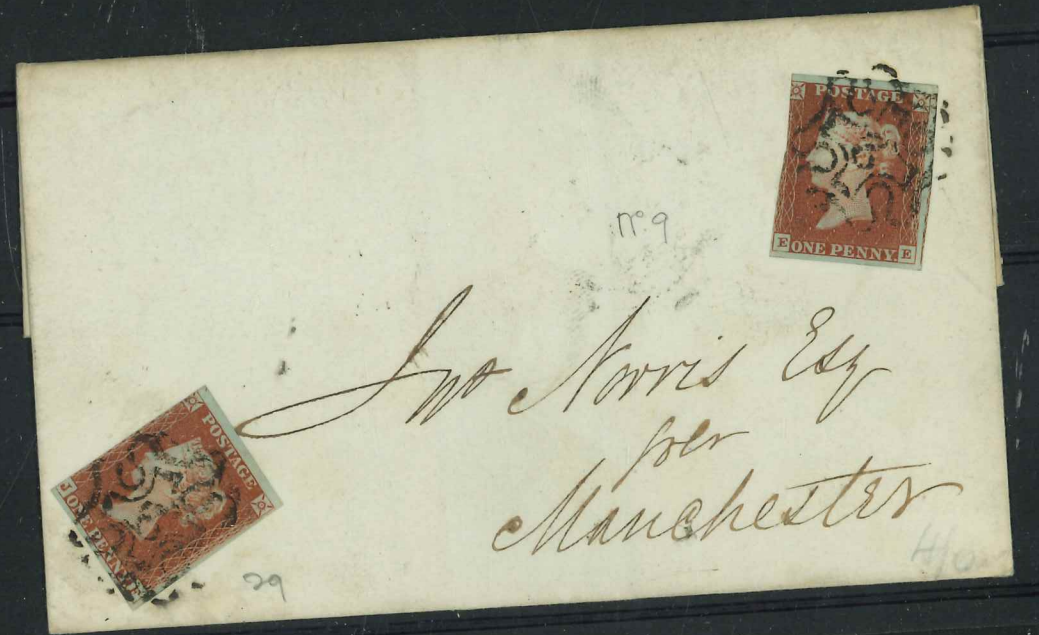 POSTAGE
E ONE PENNY. E
No. 9
Jno Norris Esq
per
Manchester
POSTAGE
J ONE PENNY. E
29
H/O